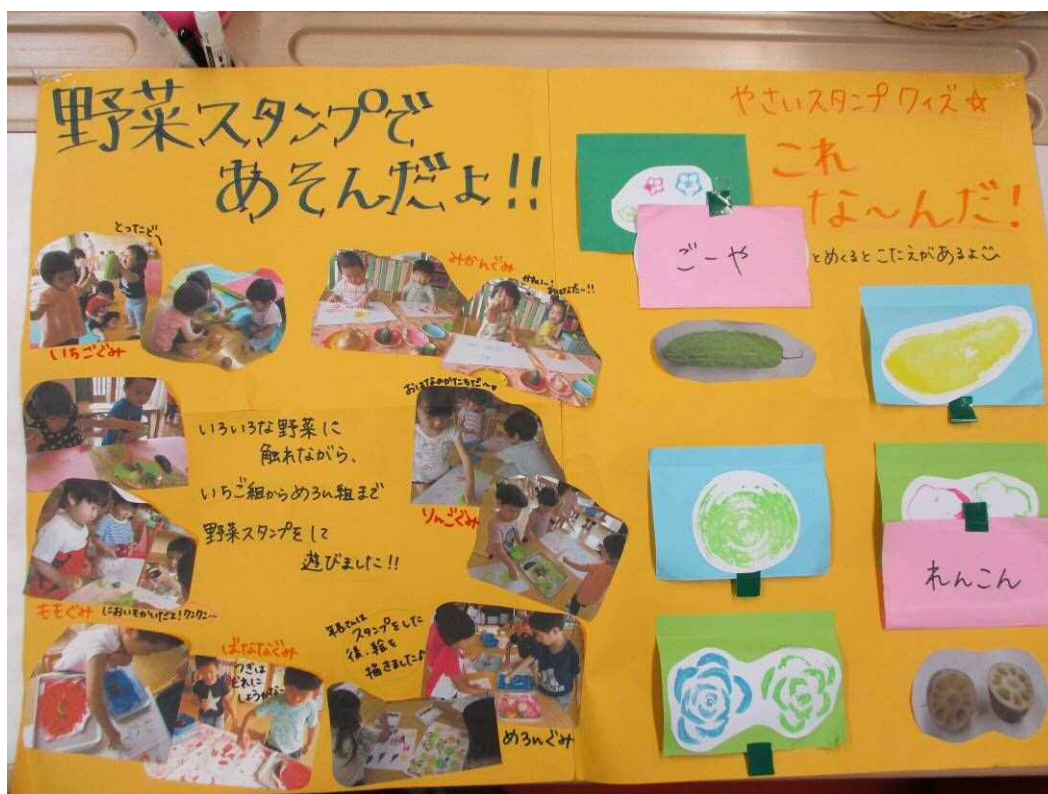 野菜スタンプで
あそんだよ!!
とったどー
いちごぐみ
みかんぐみ
おはなのかたちだ〜♥
りんごぐみ
いろいろな野菜に
触れながら、
いちご組からめろん組まで
野菜スタンプをして
遊びました!!
ももぐみ
においもかいだよ!クンクン…
ばななぐみ
つぎは
どれに
しようかな
スタンプをした
後、絵を
描きました♪
めろんぐみ
やさいスタンプクイズ☆
これ
な〜んだ!
ごーや
とめくるとこたえがあるよ
れんこん